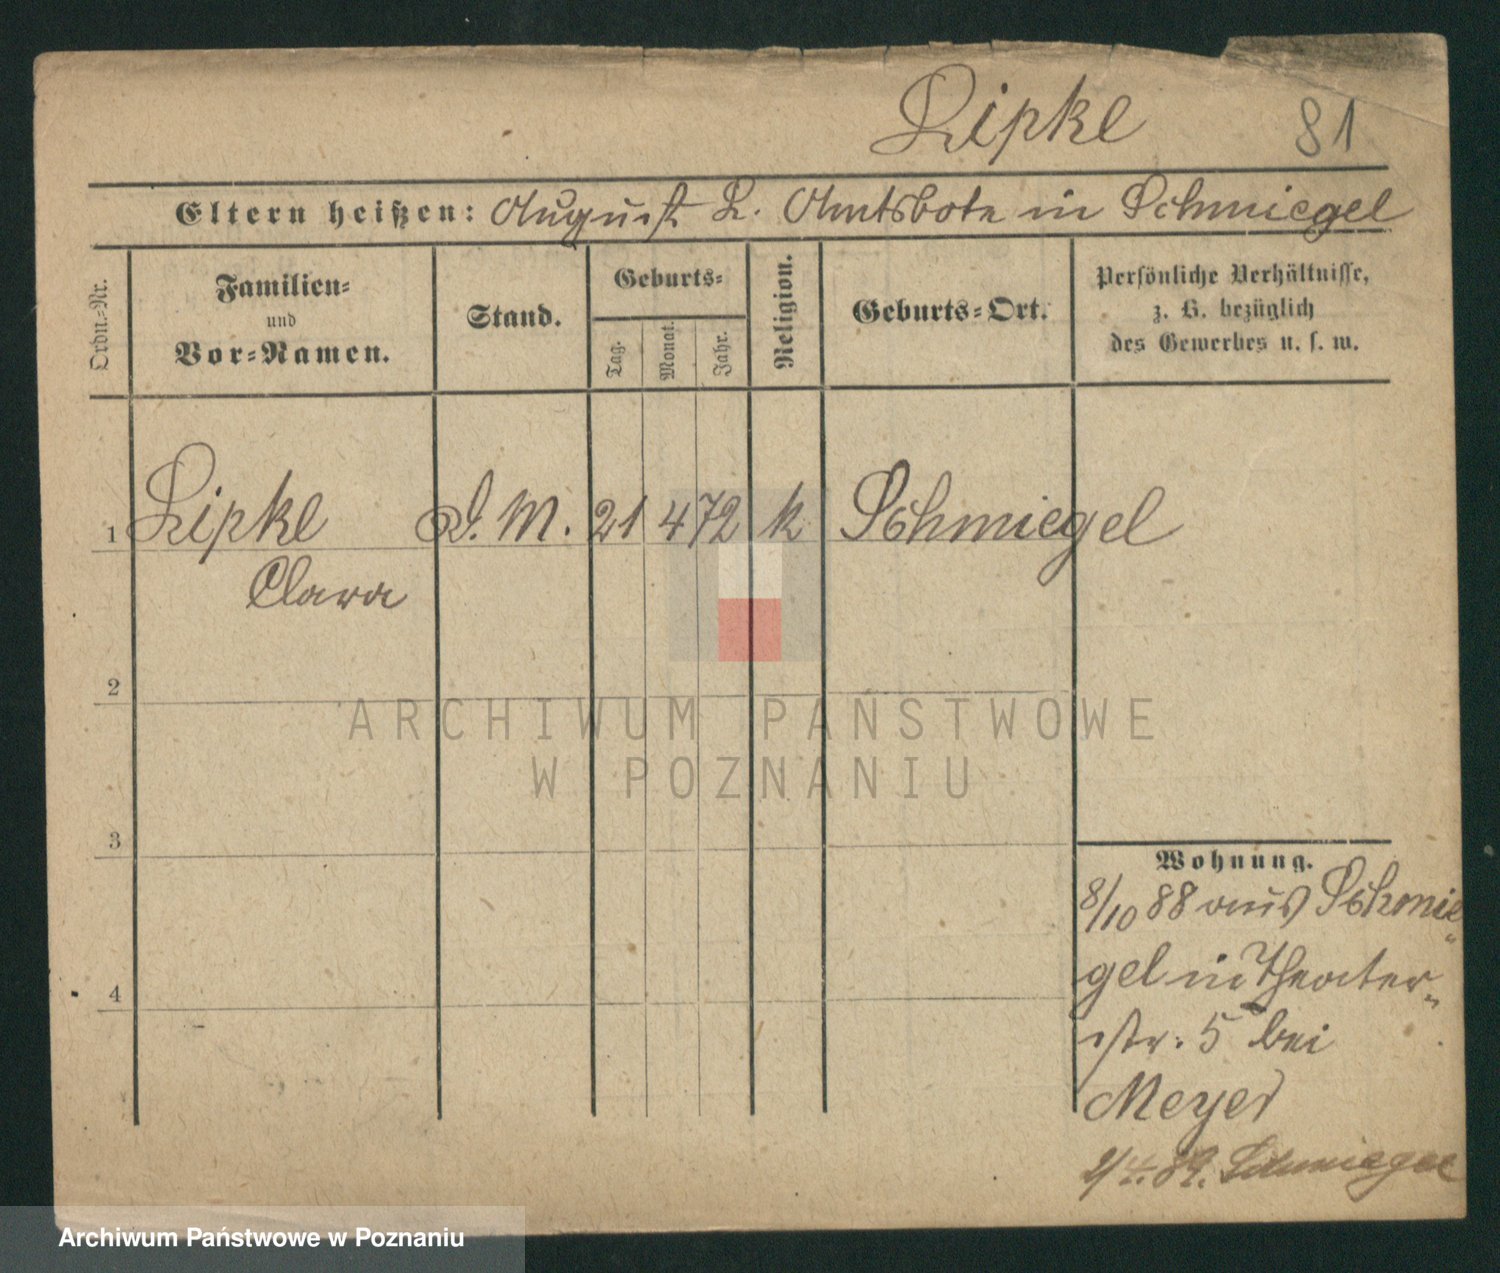 Lipke 81
Eltern heißen: August L. Amtsbote in Schmiegel
Ordn.-Nr.
Familien-
und
Vor-Namen.
Stand.
Geburts-
Tag.
Monat.
Jahr.
Religion.
Geburts-Ort.
Persönliche Verhältnisse,
z. B. bezüglich
des Gewerbes u. s. w.
1 Lipke D. M. 21 4 72 k Schmiegel
Clara
2
ARCHIWUM PAŃSTWOWE
W POZNANIU
3
Wohnung.
8/10 88 aus Schmie-
gel in Theater-
str. 5 bei
Meyer
4
2/4. 89. Schmiegel
Archiwum Państwowe w Poznaniu